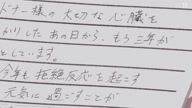 ドナー様の大切な心臓を
かりしたあの日から、もう三年が
としています。
今年も拒絶反応を起こす
元気に過ごすことが